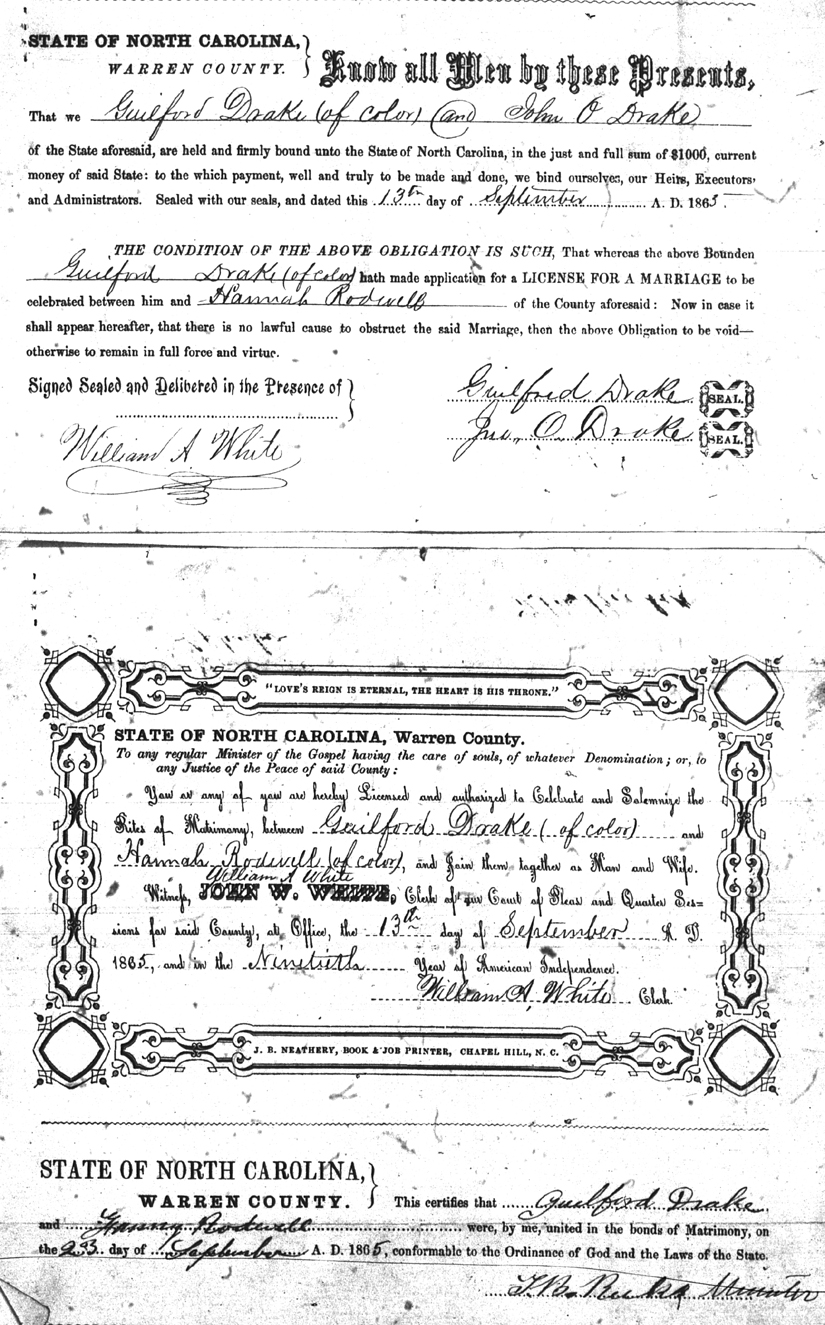 STATE OF NORTH CAROLINA,
WARREN COUNTY.
Know all Men by these Presents,
That we Guilford Drake (of color) (and John O Drake
of the State aforesaid, are held and firmly bound unto the State of North Carolina, in the just and full sum of $1000, current
money of said State: to the which payment, well and truly to be made and done, we bind ourselves, our Heirs, Executors
and Administrators. Sealed with our seals, and dated this 13th day of September A. D. 1865
THE CONDITION OF THE ABOVE OBLIGATION IS SUCH, That whereas the above Bounden
Guilford Drake (of color) hath made application for a LICENSE FOR A MARRIAGE to be
celebrated between him and Hannah Rodwell of the County aforesaid: Now in case it
shall appear hereafter, that there is no lawful cause to obstruct the said Marriage, then the above Obligation to be void—
otherwise to remain in full force and virtue.
Signed Sealed and Delibered in the Presence of
Guilford Drake SEAL.
Jno, O. Drake SEAL.
William A White
"LOVE'S REIGN IS ETERNAL, THE HEART IS HIS THRONE."
STATE OF NORTH CAROLINA, Warren County.
To any regular Minister of the Gospel having the care of souls, of whatever Denomination; or, to
any Justice of the Peace of said County:
You or any of you are hereby Licensed and authorized to Celebrate and Solemnize the
Rites of Matrimony, between Guilford Drake (of color) and
Hannah Rodwell (of color), and Join them together as Man and Wife.
William A White
Witness, JOHN W. WHITE, Clerk of our Court of Pleas and Quarter Ses=
sions for said County, at Office, the 13th day of September A. D.
1865, and in the Ninetieth Year of American Independence.
William A. White Clerk.
J. B. NEATHERY, BOOK & JOB PRINTER, CHAPEL HILL, N. C.
STATE OF NORTH CAROLINA,
WARREN COUNTY.
This certifies that Guilford Drake
and Rodwell were, by me, united in the bonds of Matrimony, on
the 23 day of September A. D. 1865, conformable to the Ordinance of God and the Laws of the State.
T. B.